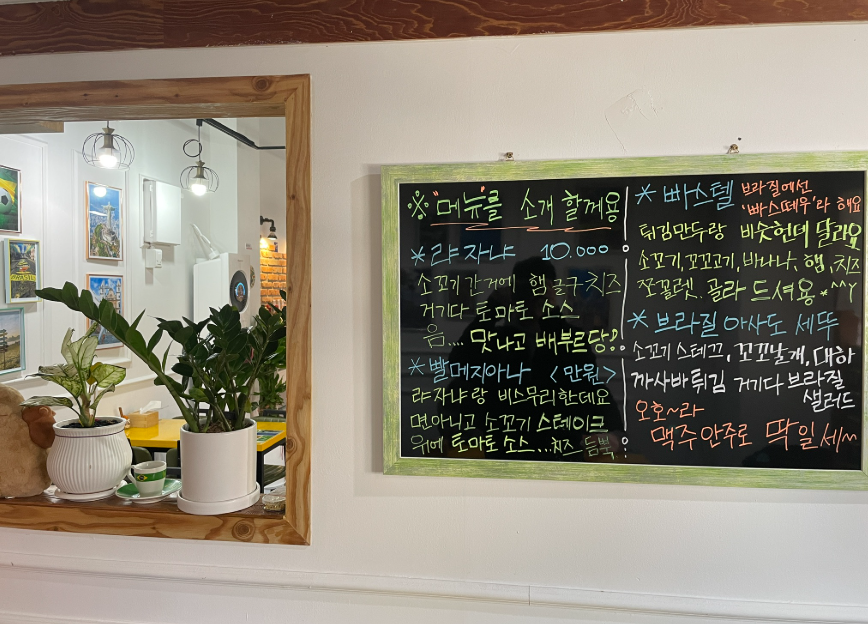 ※ "메뉴"를 소개 할께용
* 랴자냐 10.000
소꼬기 간거에 햄 글구 치즈
거기다 토마토 소스
음.... 맛나고 배부르당!
* 빨메지아나 <만원>
랴자냐랑 비스무리한데요
면아니고 소꼬기 스테이크
위에 토마토 소스...치즈 듬뿍
* 빠스텔 브라질에선
'빠스떼우'라 해요
튀김만두랑 비슷헌데 달라요
소꼬기, 꼬꼬고기, 바나나, 햄, 치즈
쪼꼴렛. 골라 드셔용*^^
* 브라질 아사도 세뚜
소꼬기 스테끄, 꼬꼬날개, 대하
까사바 튀김 거기다 브라질
샐러드
오호~라
맥주 안주로 딱일세~